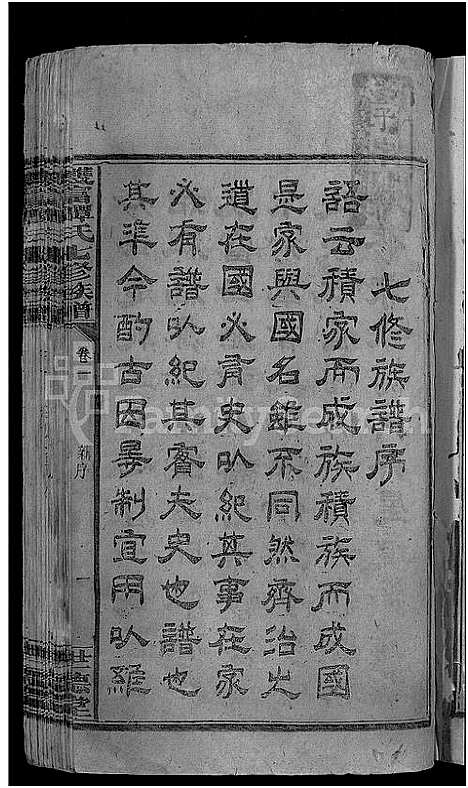 七修族譜序
語云積家而成族積族而成國
是家與國名雖不同然齊治之
道在國必有史㕥紀其事在家
必有譜㕥紀其實夫史也譜也
其準今酌古因晷制宜用㕥維
雙富譚氏七修族譜
卷一
新序
一
世德堂
FamilySearch